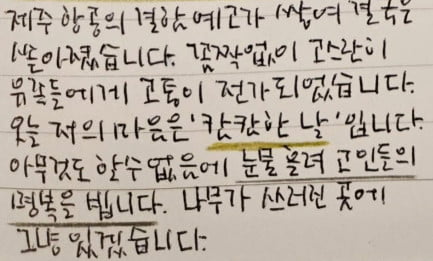 제주 항공의 결함 예고가 쌓여 결국은
쏟아졌습니다. 꼼짝없이 고스란히
유족들에게 고통이 전가되었습니다.
오늘 저의 마음은 '캄캄한 날' 입니다.
아무것도 할 수 없음에 눈물 흘려 고인들의
명복을 빕니다. 나무가 쓰러진 곳에
그냥 있겠습니다.